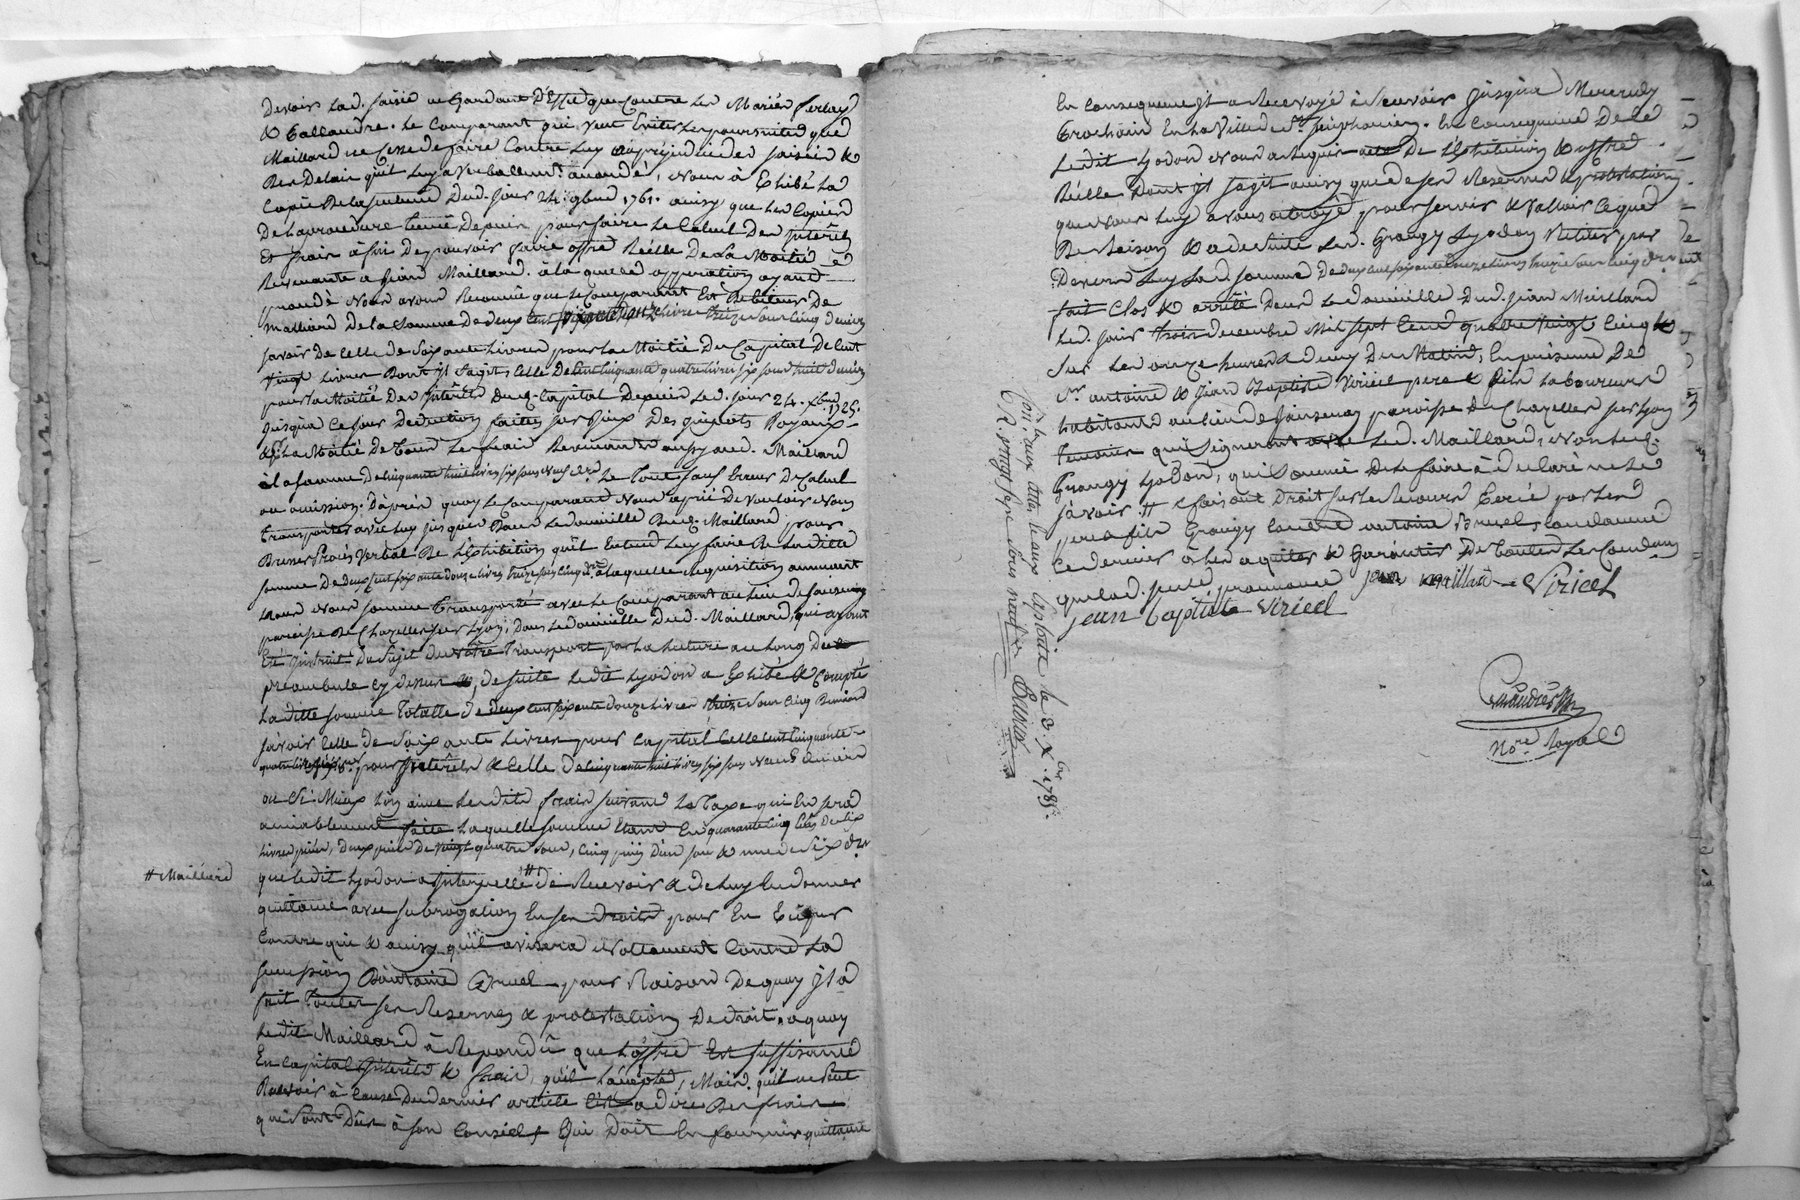 devoir lad. saisie ne Gardant d'Effet que Contre les Mariés
& Callandre. Le Comparant qui veut Eviter les poursuites que
Maillard ne Cesse de faire Contre Luy au préjudice des saisie &
des delais qu'il luy a verballemt. accordé, Nous à Exhibé La
Copie de la sentence dud. jour 24. 9bre 1761. ainsy que les Copies
de la procedure tenue depuis, pour faire le Calcul des jnterêts
Et frais à fin de pouvoir faire offre Réelle de La Moitié
Revenante a Jean Maillard. à la quelle opperation ayant
procedé Nous avons Reconnu que le Comparant Est debiteur de
Malliard de la somme de deux Cent soixante douze Livres treize sous Cinq deniers
savoir de Celle de soixante Livres pour la Moitié du Capital de Cent
vingt Livres dont jl s'agit, Celle de Cent Cinquante quatre Livres six sous huit deniers
pour la Moitié des jnterêts dud. Capital depuis led. jour 24. Xbre 1725.
jusqu'à Ce jour deduction faitte des jmpots Royaux
& la Moitié de tous les frais Revenants aussy aud. Maillard
à la somme de Cinquante huit Livres six sous Neuf drs. Le tout sauf Erreur de Calcul
ou omission. d'après quoy le Comparant Nous a prié de vouloir Nous
transporter avec Luy jusques dans le domicille dud. Maillard pour
dresser Procès Verbal de l'Exhibition qu'il Entend Luy faire de La ditte
somme de deux Cent soixante douze Livres treize sous Cinq drs. à laquelle requisition annuant
Nous Nous sommes transporté avec le Comparant au lieu de
paroisse de Chazelles sur Lyon, dans le domicille dud. Maillard, qui ayant
Eté jnstruit du sujet de Nôtre transport par la Lecture au long du
preambule cy dessus & de suite Ledit Lyodon a Exhibé & Compté
La ditte somme totalle de deux Cent soixante douze Livres treize sous Cinq deniers
savoir Celle de soixante Livres pour Capital Celle Cent Cinquante
quatre Livres pour jnterêts & Celle de Cinquante huit Livres six sous Neuf deniers
ou si Mieux L'on aime Lesdits frais suivant La taxe qui En sera
amiablement faite Laquelle somme Etant En quarante Cinq Ecus de six
Livres pièce, deux pièces de vingt quatre sous, Cinq pièces d'un sou & une de six drs.
que ledit Lyodon a jnterpellé # de Recevoir & de luy En donner
quittance avec subrogation En ses droits pour En Exiger
Contre qui & ainsy qu'il avisera Nottament Contre La
succession d'Antoine Bruel pour Raison de quoy jl a
fait toutes ses Reserves & protestations de droit, a quoy
Ledit Maillard à Repondû que L'offre Est suffisante
En Capital jnterêts & frais, qu'il L'accepte, Mais qu'il ne peut
Recevoir à Cause du dernier article C'est a dire des frais
qui sont dûs à son Conseil & qui doit En fournir quittance
# Mailliard
En Consequence jl a Renvoyé à Recevoir jusqu'a Mercredy
prochain En la Ville de St. simphorien. En Consequence de Ce
Ledit Lyodon Nous a Requis acte de l'Exhibition & offre
Réelle dont jl s'agit ainsy que de ses Reserves & protestations
que Nous luy avons octroyé pour servir & valloir Ce que
de Raison & a de suite led. Grangy Lyodon Retiré par
devers Luy Lad. somme de deux Cent soixante douze Livres treize sous Cinq drs.
fait Clos & arrêté dans Le domicille dud. Jean Maillard
Led. jour trois decembre Mil sept Cent quatre vingt Cinq &
sur Les onze heures & demy du Matin, En presence de
sr. antoine & Jean Baptiste Viricel pere & fils Laboureurs
habitants au lieu de paroisse de Chazelles sur Lyon
temoins qui signeront avec Led. Maillard, Non Led.
Grangy Lyodon, qui sommé de le faire à declaré ne le
savoir # faisant droit sur le Recours Exercé par Les
pere & fils Grangy Contre antoine Bruel Condamne
Ce dernier à les aquiter & Garantir de toutes Les Condamons
que lad. sentce. prononce Jean maillard Viricel
jean baptiste viricel
Con.lé aux actes le aux Exploits le 3 Xbre 1785.
R. vingt sept sous neuf drs.
Nore. Royal